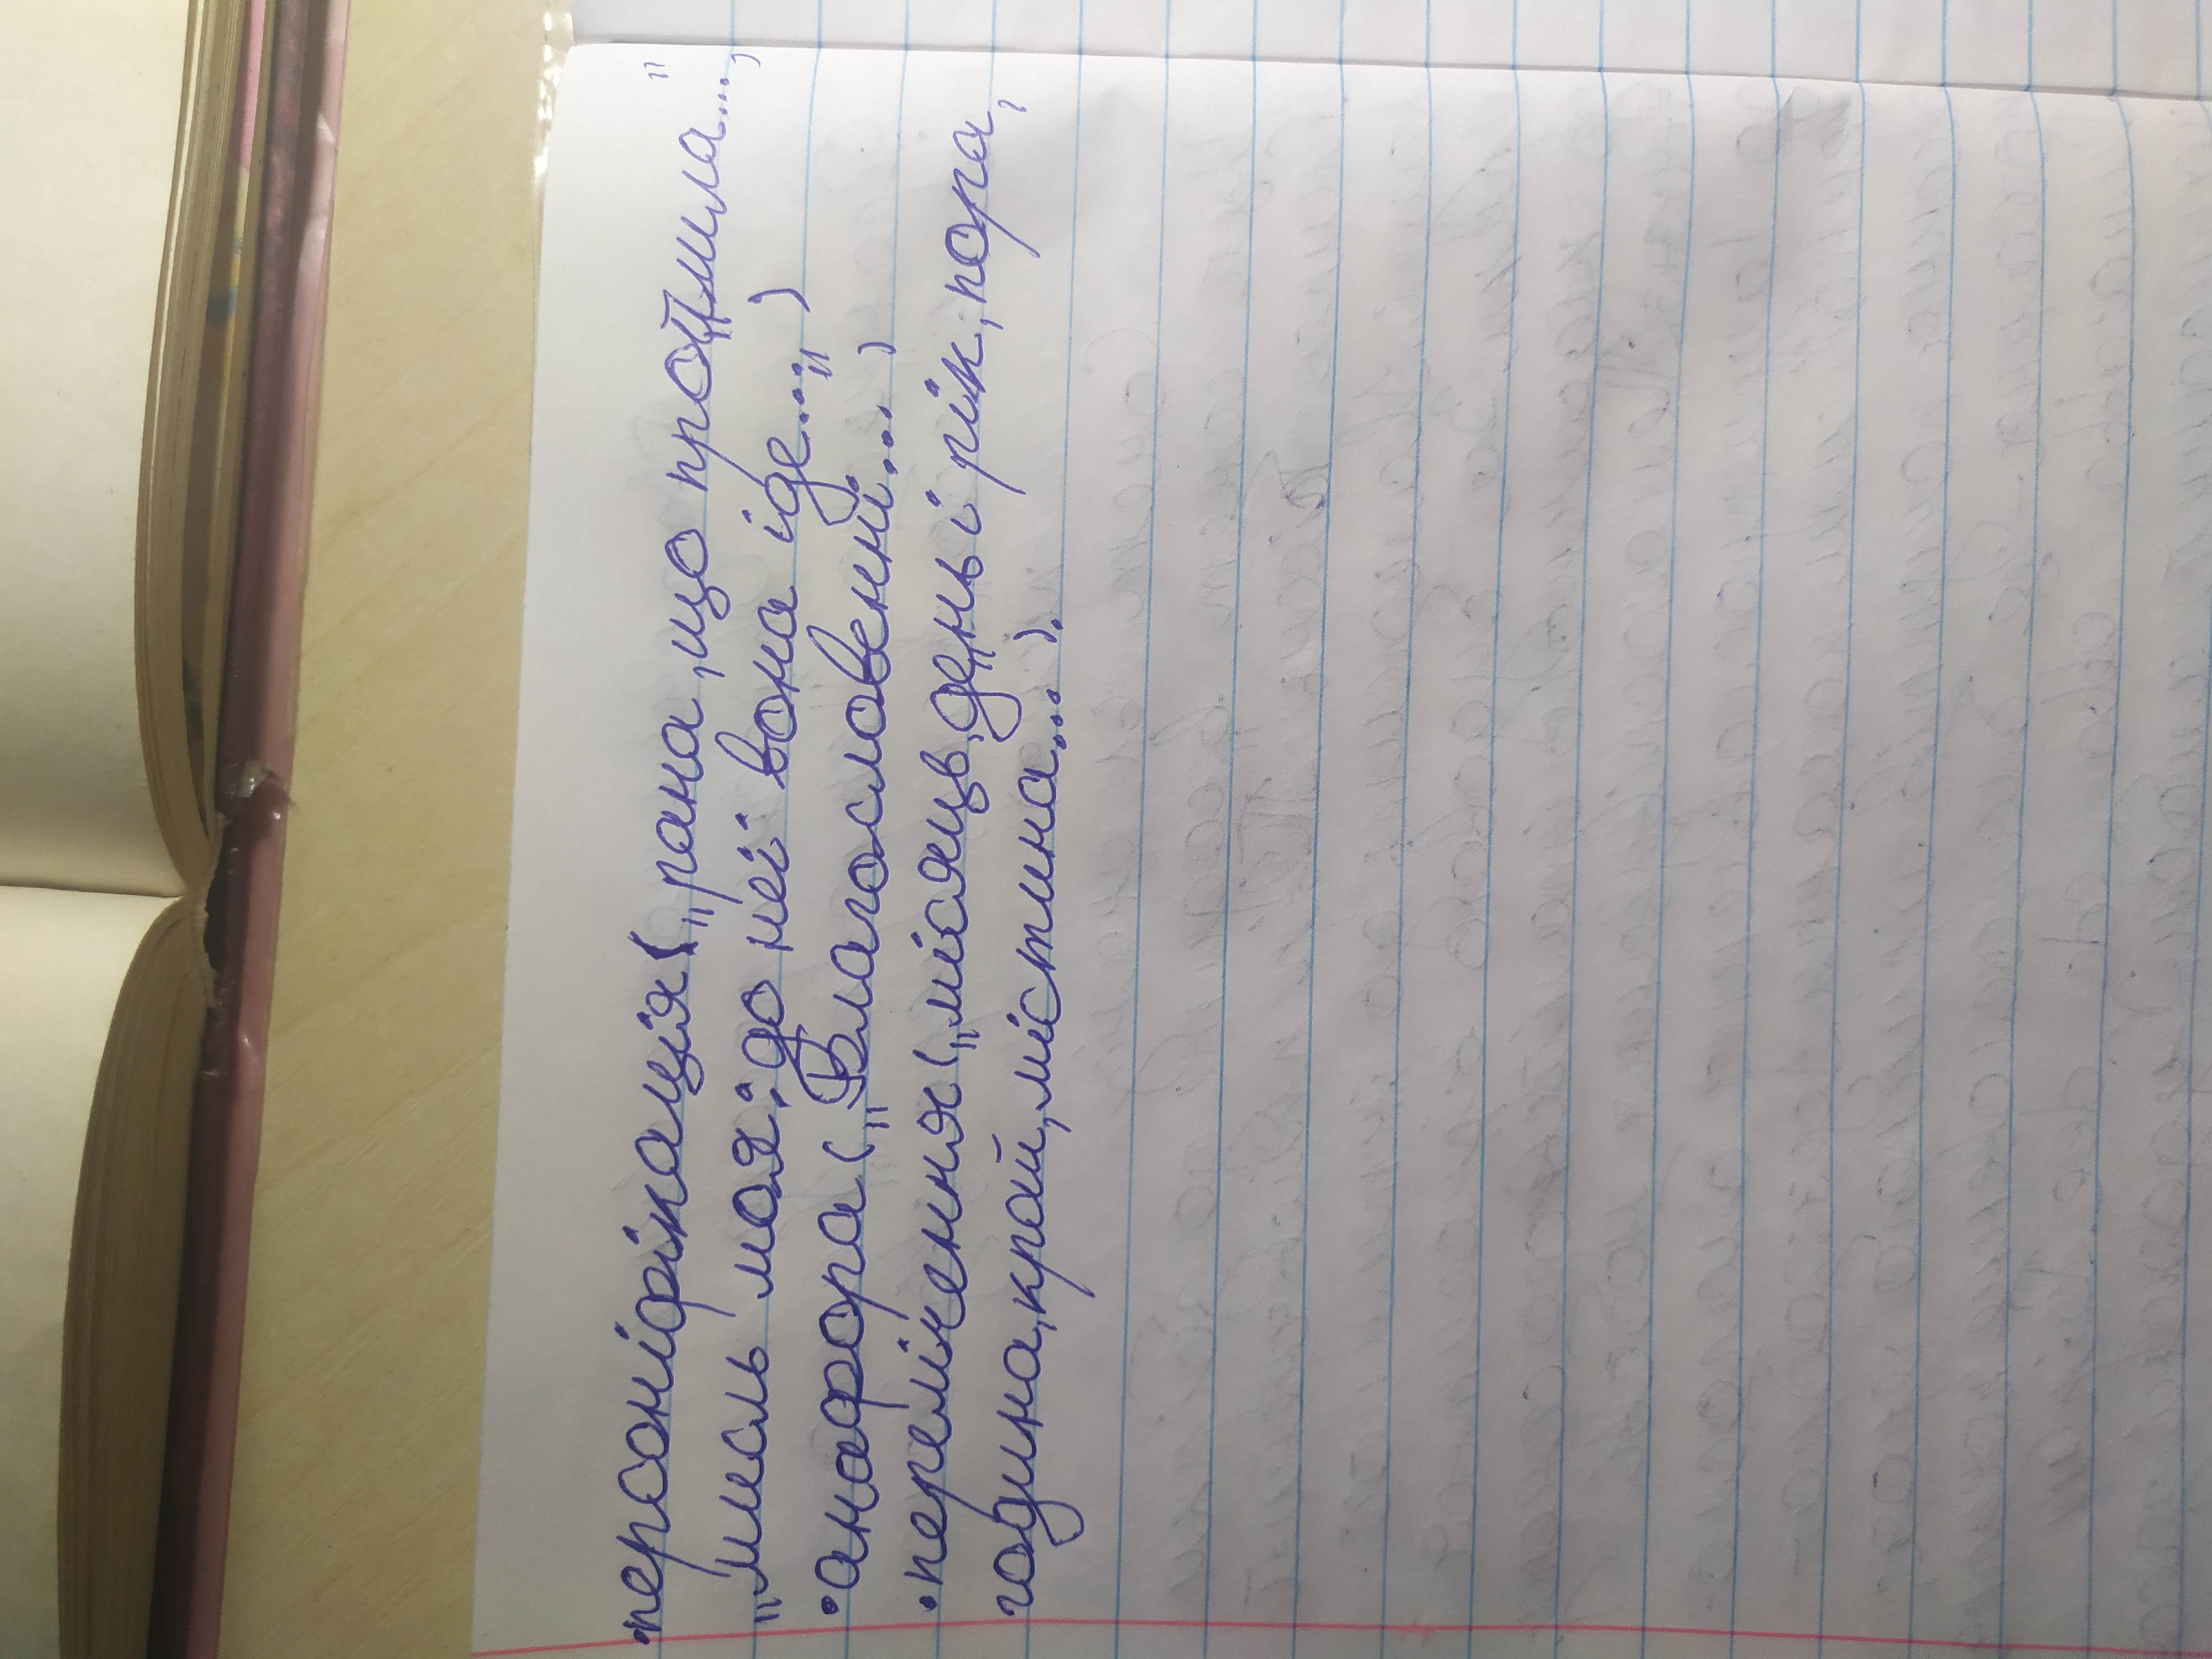 •персоніфікація(„рана, що протмила..."
„мисль моя; до неї вона іде...")
•анафора(„Благословенні...)
•перелічення(„місяць, день і рік, пора,
година, край, містина...).